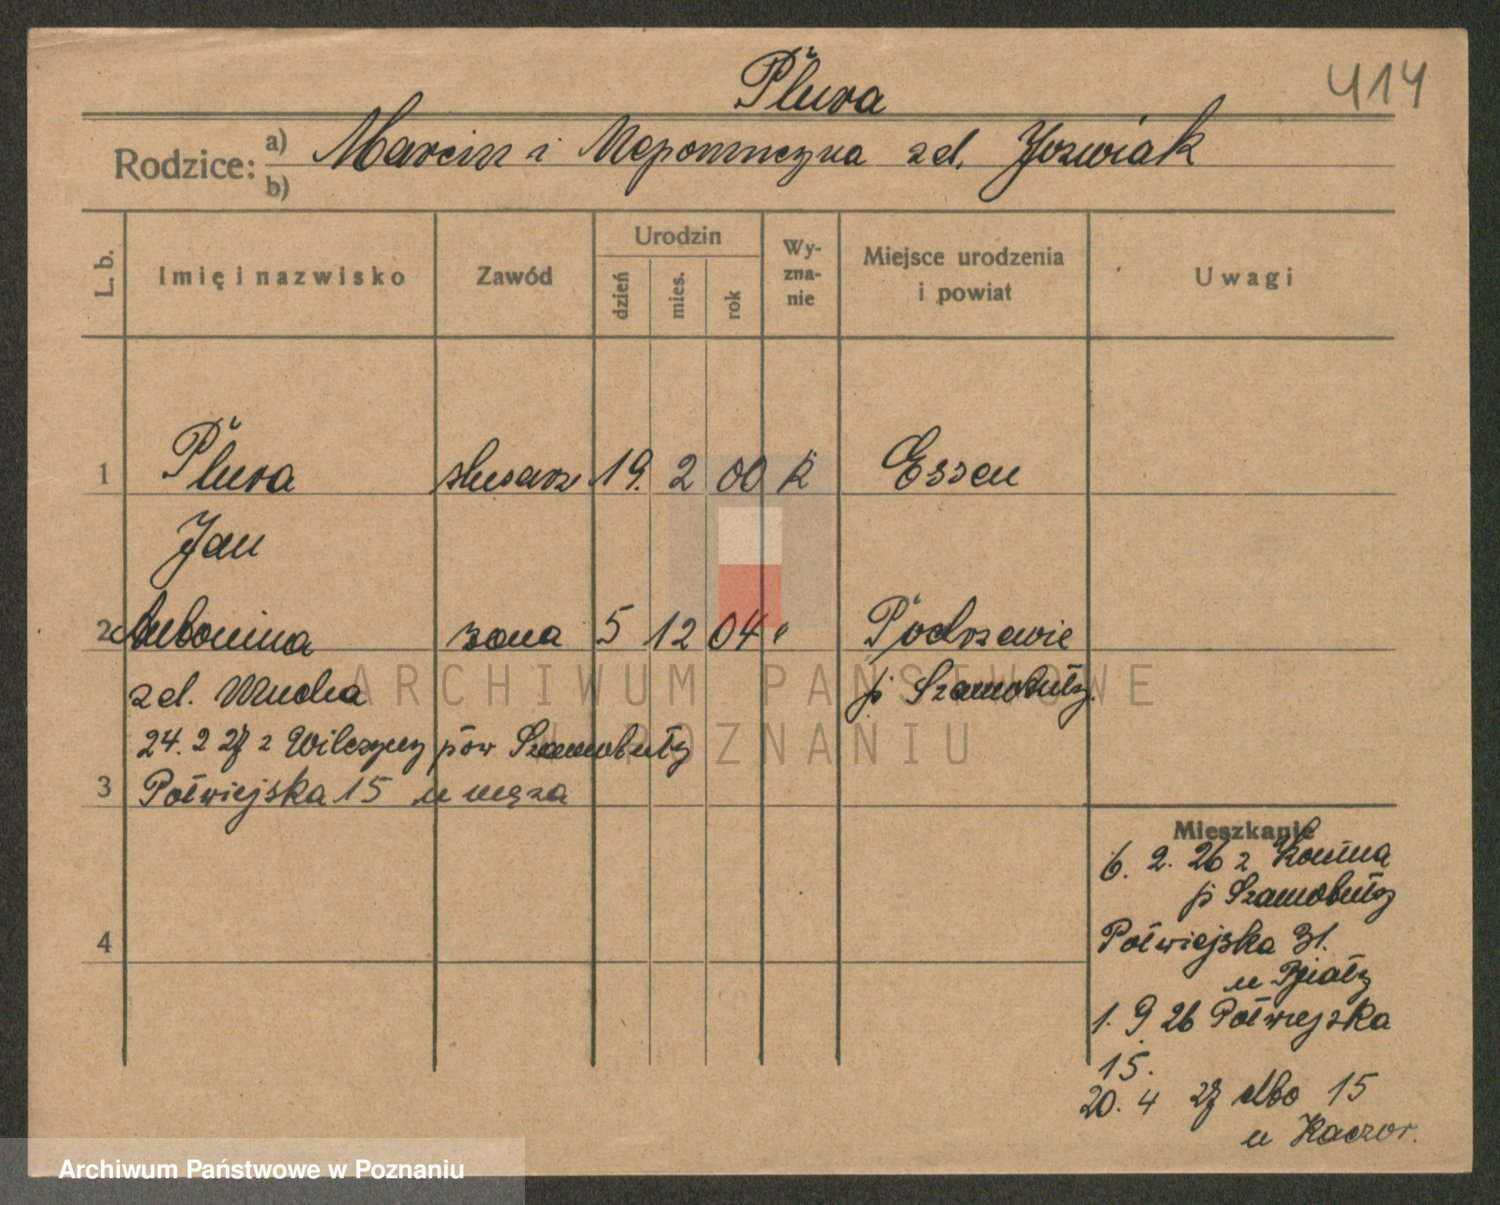 Plura
414
Rodzice: a) Marcin i Nepomucyna zd. Jozwiak
b)
L. b. Imię i nazwisko Zawód Urodzin dzień mies. rok Wyznanie Miejsce urodzenia i powiat Uwagi
1 Plura slusarz 19. 2 00 k Essen
Jan
2 Antonina zona 5 12 04 " Podrzewie
zd. Mucha p Szamotuły
24. 2 27 z Wilczyny pow Szamotuły
3 Półwiejska 15 u męza
Mieszkanie
6. 2. 26 z Konina
p Szamotuły
Półwiejska 31.
u
1. 9 26 Półwiejska
4
15.
20. 4 27 dto 15
u Kaczor.
ARCHIWUM PAŃSTWOWE
W POZNANIU
Archiwum Państwowe w Poznaniu